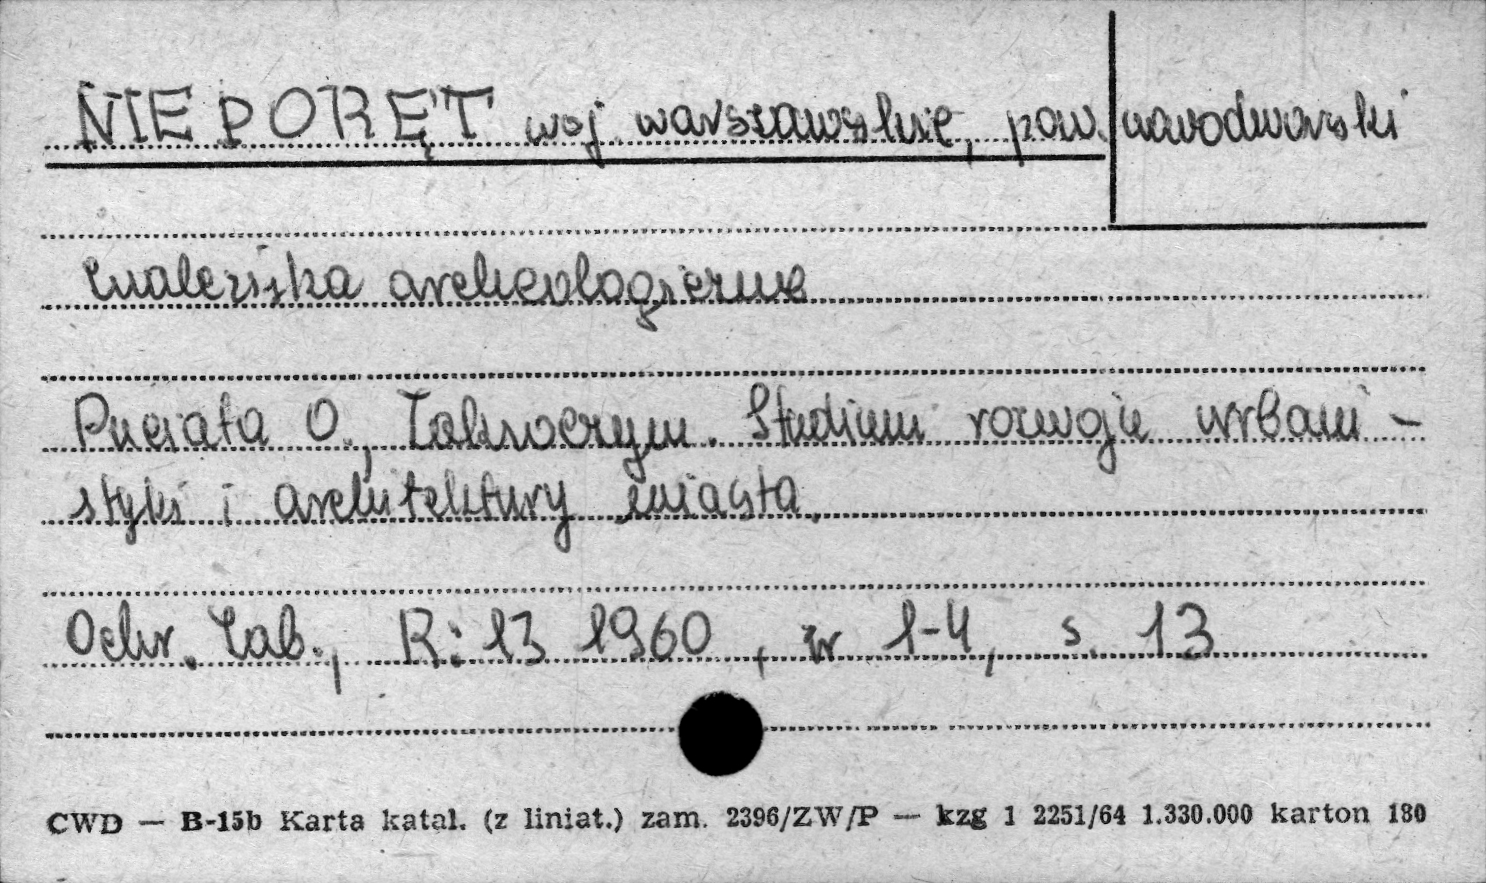 NIEPORĘT woj. warszawskie, pow. nowodworski
znaleziska archeologiczne
Puciata O., Zakroczym. Studium rozwoju urbani-
styki i architektury miasta.
Ochr. Zab., R: 13 1960, nr 1-4, s. 13
CWD — B-15b Karta katal. (z liniat.) zam. 2396/ZW/P — kzg 1 2251/64 1.330.000 karton 180